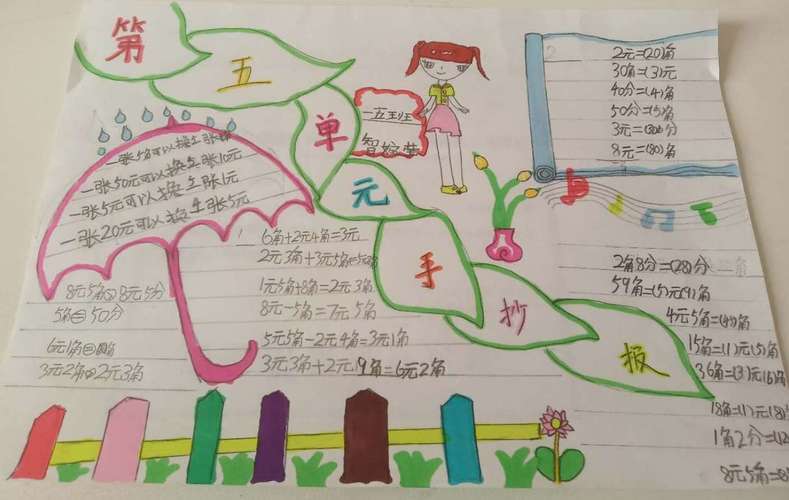 第五单元手抄报
一五班
2元=(20)角
30角=(3)元
40分=(4)角
50分=(5)角
3元=(300)分
8元=(80)角
一张50元可以换5张10元
一张5元可以换5张1元
一张20元可以换4张5元
8元5角>8元5分
5角=50分
3元2角>2元3角
6角+2元4角=3元
2元3角+3元5角=
1元5角+8角=2元3角
8元-5角=7元5角
5元5角-2元4角=3元1角
3元3角+2元9角=6元2角
2角8分=(28)分
59角=(5)元(9)角
4元5角=(45)角
15角=(1)元(5)角
36角=(3)元(6)角
18角=(1)元(8)
1角2分=(12
8元5角=